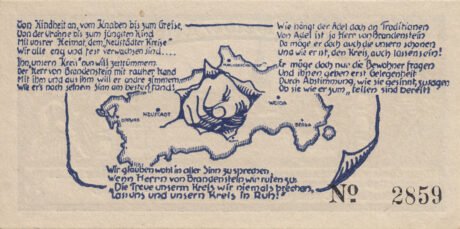 Von Kindheit an, vom Knaben bis zum Greise,
Von der Urahne bis zum jüngsten Kind
Mit unsrer Heimat, dem Neustädter Kreise
Wir alle eng und fest verwachsen sind....
Ihn, unsern "Kreis" nun will zertrümmern
Der Herr von Brandenstein mit rauher Hand
Mit ihm und aus ihm will er andre zimmern,
Wie er's nach seinem Sinn am besten fand!
Wie hängt der Adel doch an Traditionen
Von Adel ist ja Herr von Brandenstein
Da möge er doch auch die unsern schonen
Und wie er ist, den Kreis auch lassen sein!
Er möge doch nur die Bewohner fragen
Und ihnen geben erst Gelegenheit
Durch Abstimmung, wie sie gesinnt, zu sagen
Ob sie wie er zum "teilen" sind bereit!
NEUSTADT
WEIDA
BERGA
Wir glauben wohl in aller Sinn zu sprechen,
Wenn Herrn von Brandenstein wir rufen zu:
"Die Treue unserm Kreis wir niemals brechen,
Lass uns und unsern Kreis in Ruh!"
No 2859